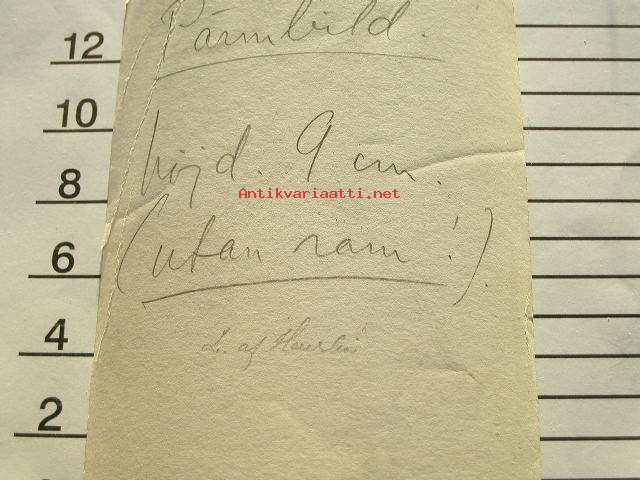 Pärmbild.
höjd. 9 cm.
Antikvariaatti.net
(utan ram!).
L. af
12
10
8
6
4
2